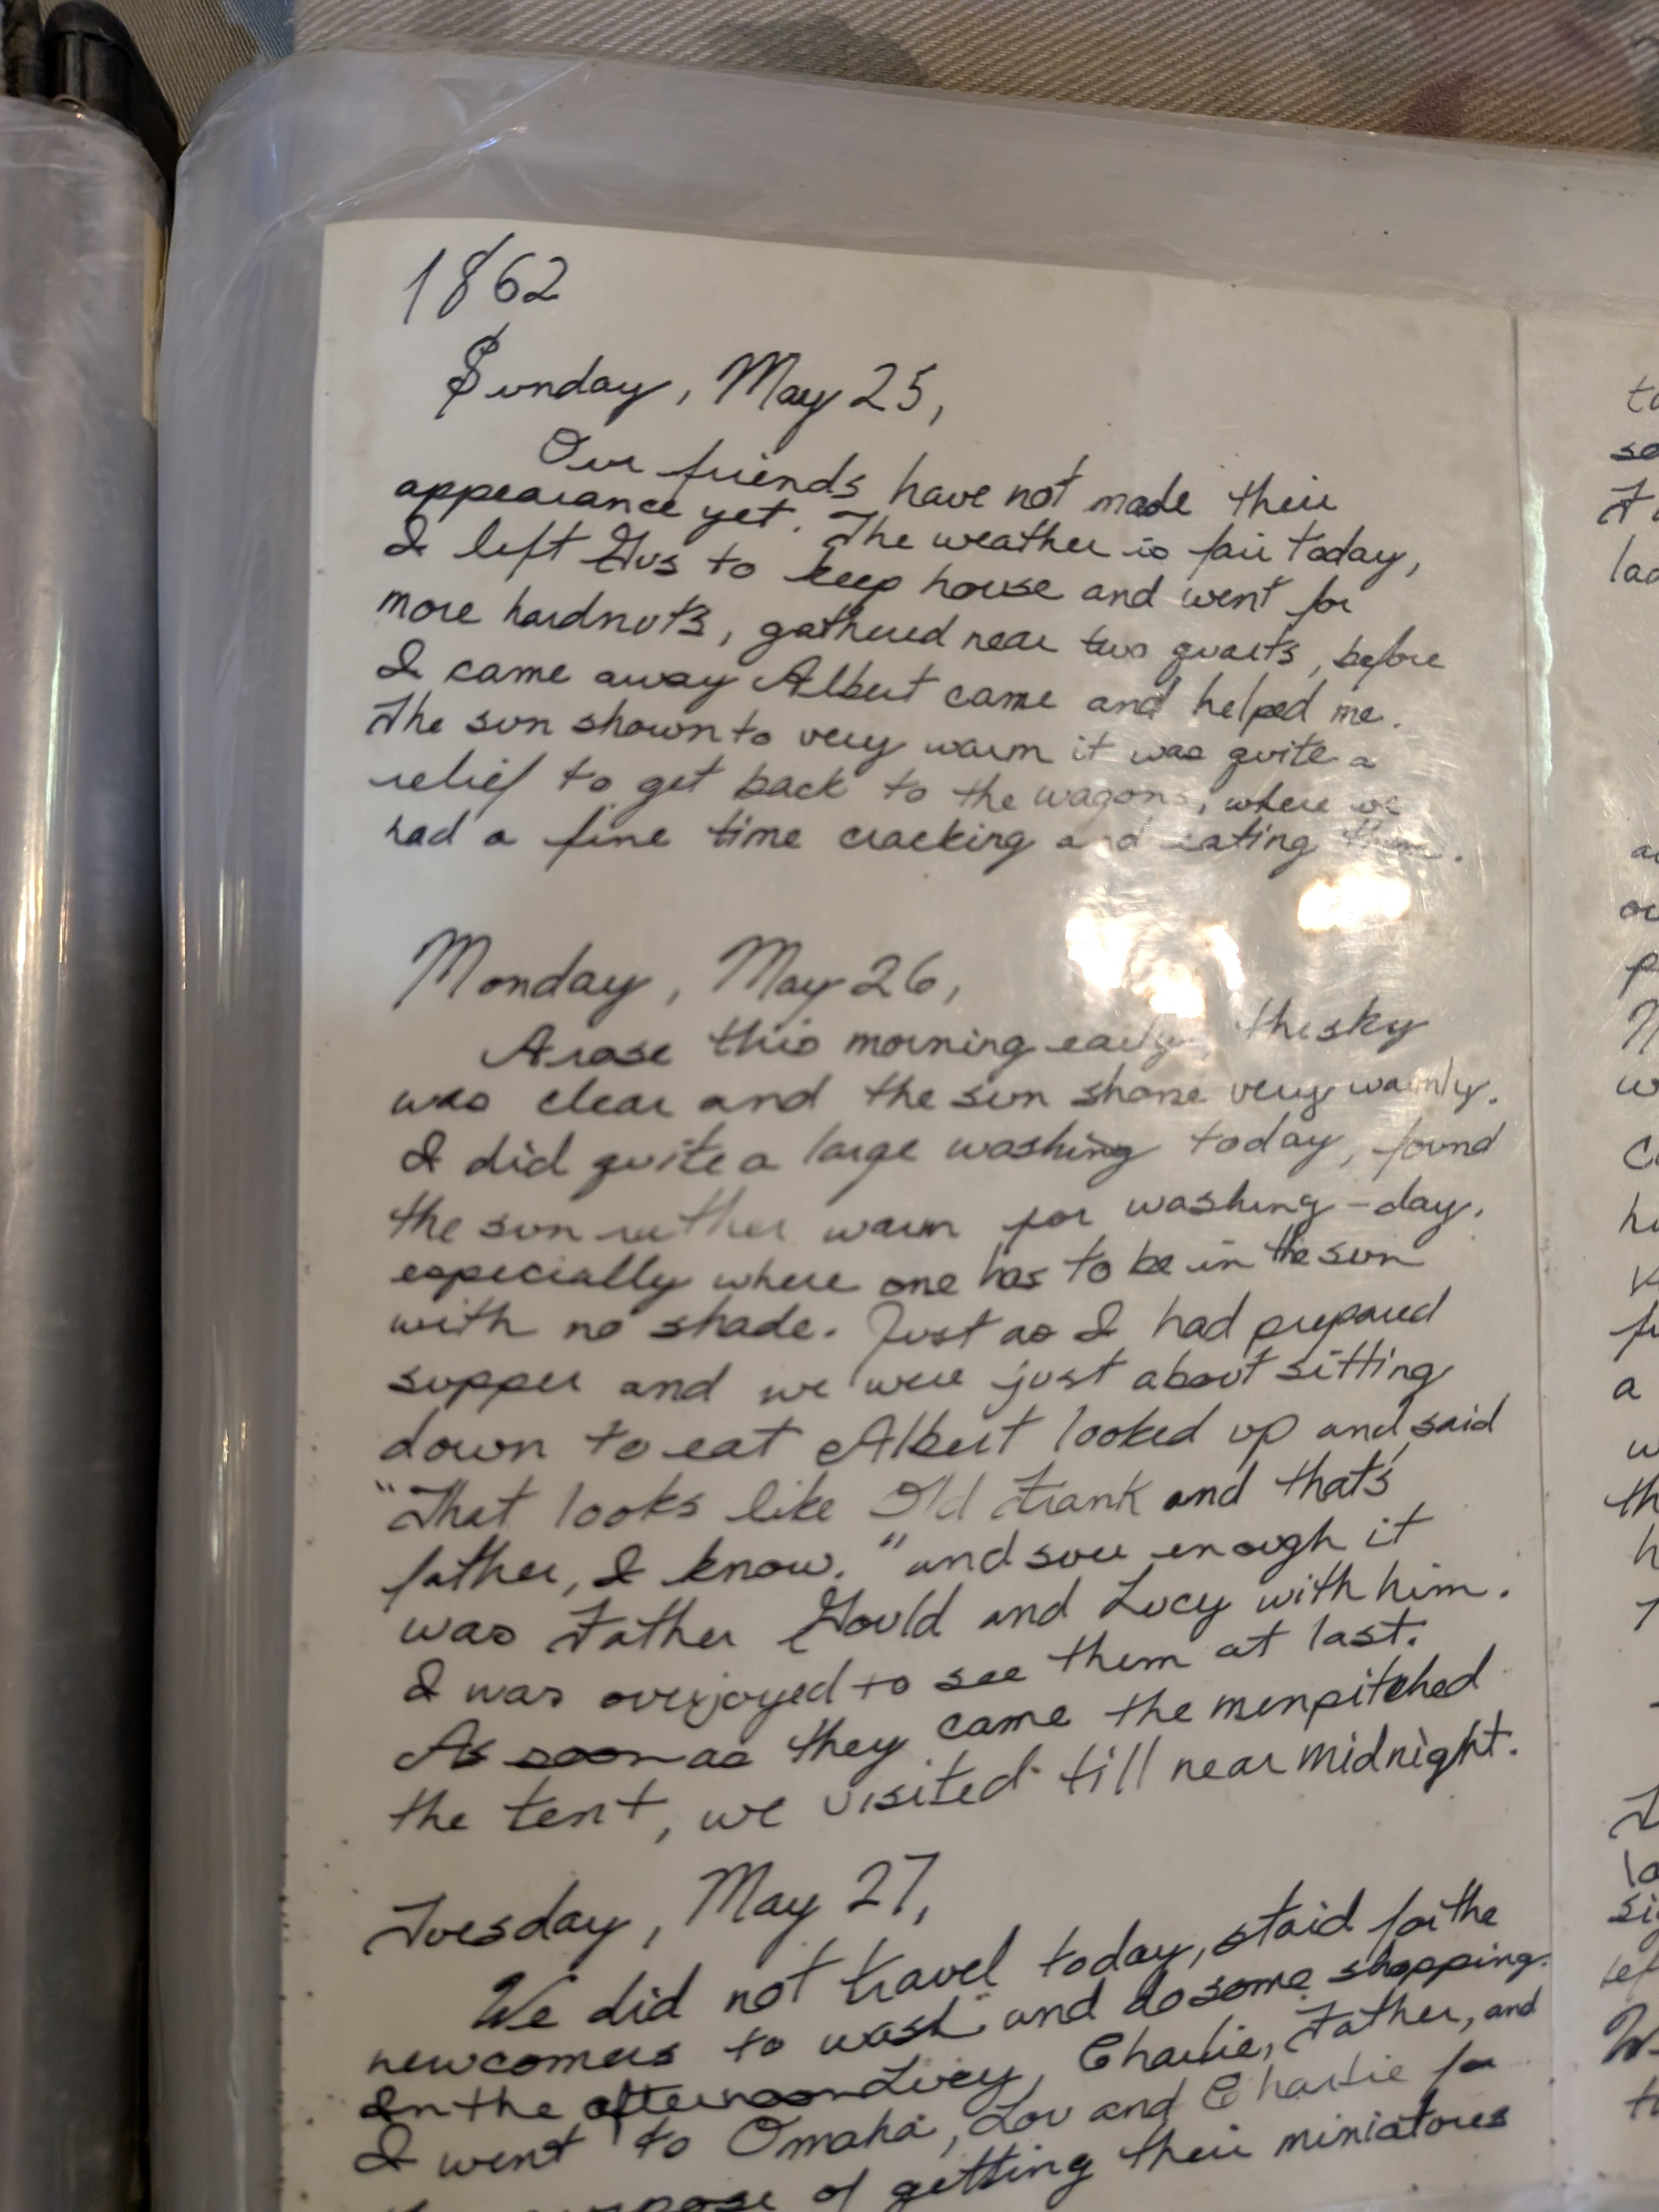 1862
Sunday, May 25,
Our friends have not made their
appearance yet. The weather is fair today,
I left Gus to keep house and went for
more hardnuts, gathered near two quarts, before
I came away Albert came and helped me.
The sun shown to very warm it was quite a
relief to get back to the wagons, where we
had a fine time cracking and eating them.
Monday, May 26,
Arose this morning early, the sky
was clear and the sun shone very warmly.
I did quite a large washing today, found
the sun rather warm for washing-day.
especially where one has to be in the sun
with no shade. Just as I had prepared
supper and we were just about sitting
down to eat Albert looked up and said
"That looks like Old Frank and that's
father, I know." and sure enough it
was Father Gould and Lucy with him.
I was overjoyed to see them at last.
As soon as they came the men pitched
the tent, we visited till near midnight.
Tuesday, May 27,
We did not travel today, staid for the
newcomers to wash and do some shopping.
In the afternoon Lucy, Charlie, Father, and
I went to Omaha, Lou and Charlie for
of getting their miniatures
to
se
la
p
w
C
h
a
w
th
h
lo
si
lef
W